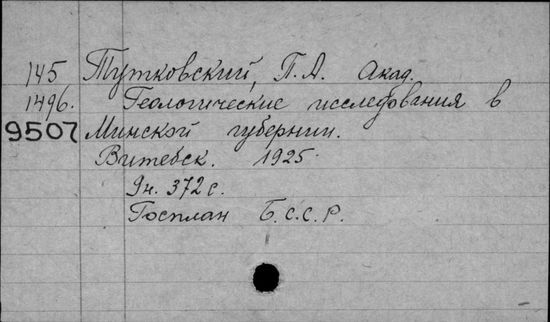 145 Тутковский, П.А. Акад.
1496. Геологические исследования в
9507 Минской губернии.
Витебск. 1925.
9н. 372 с.
Госплан Б.С.С.Р.